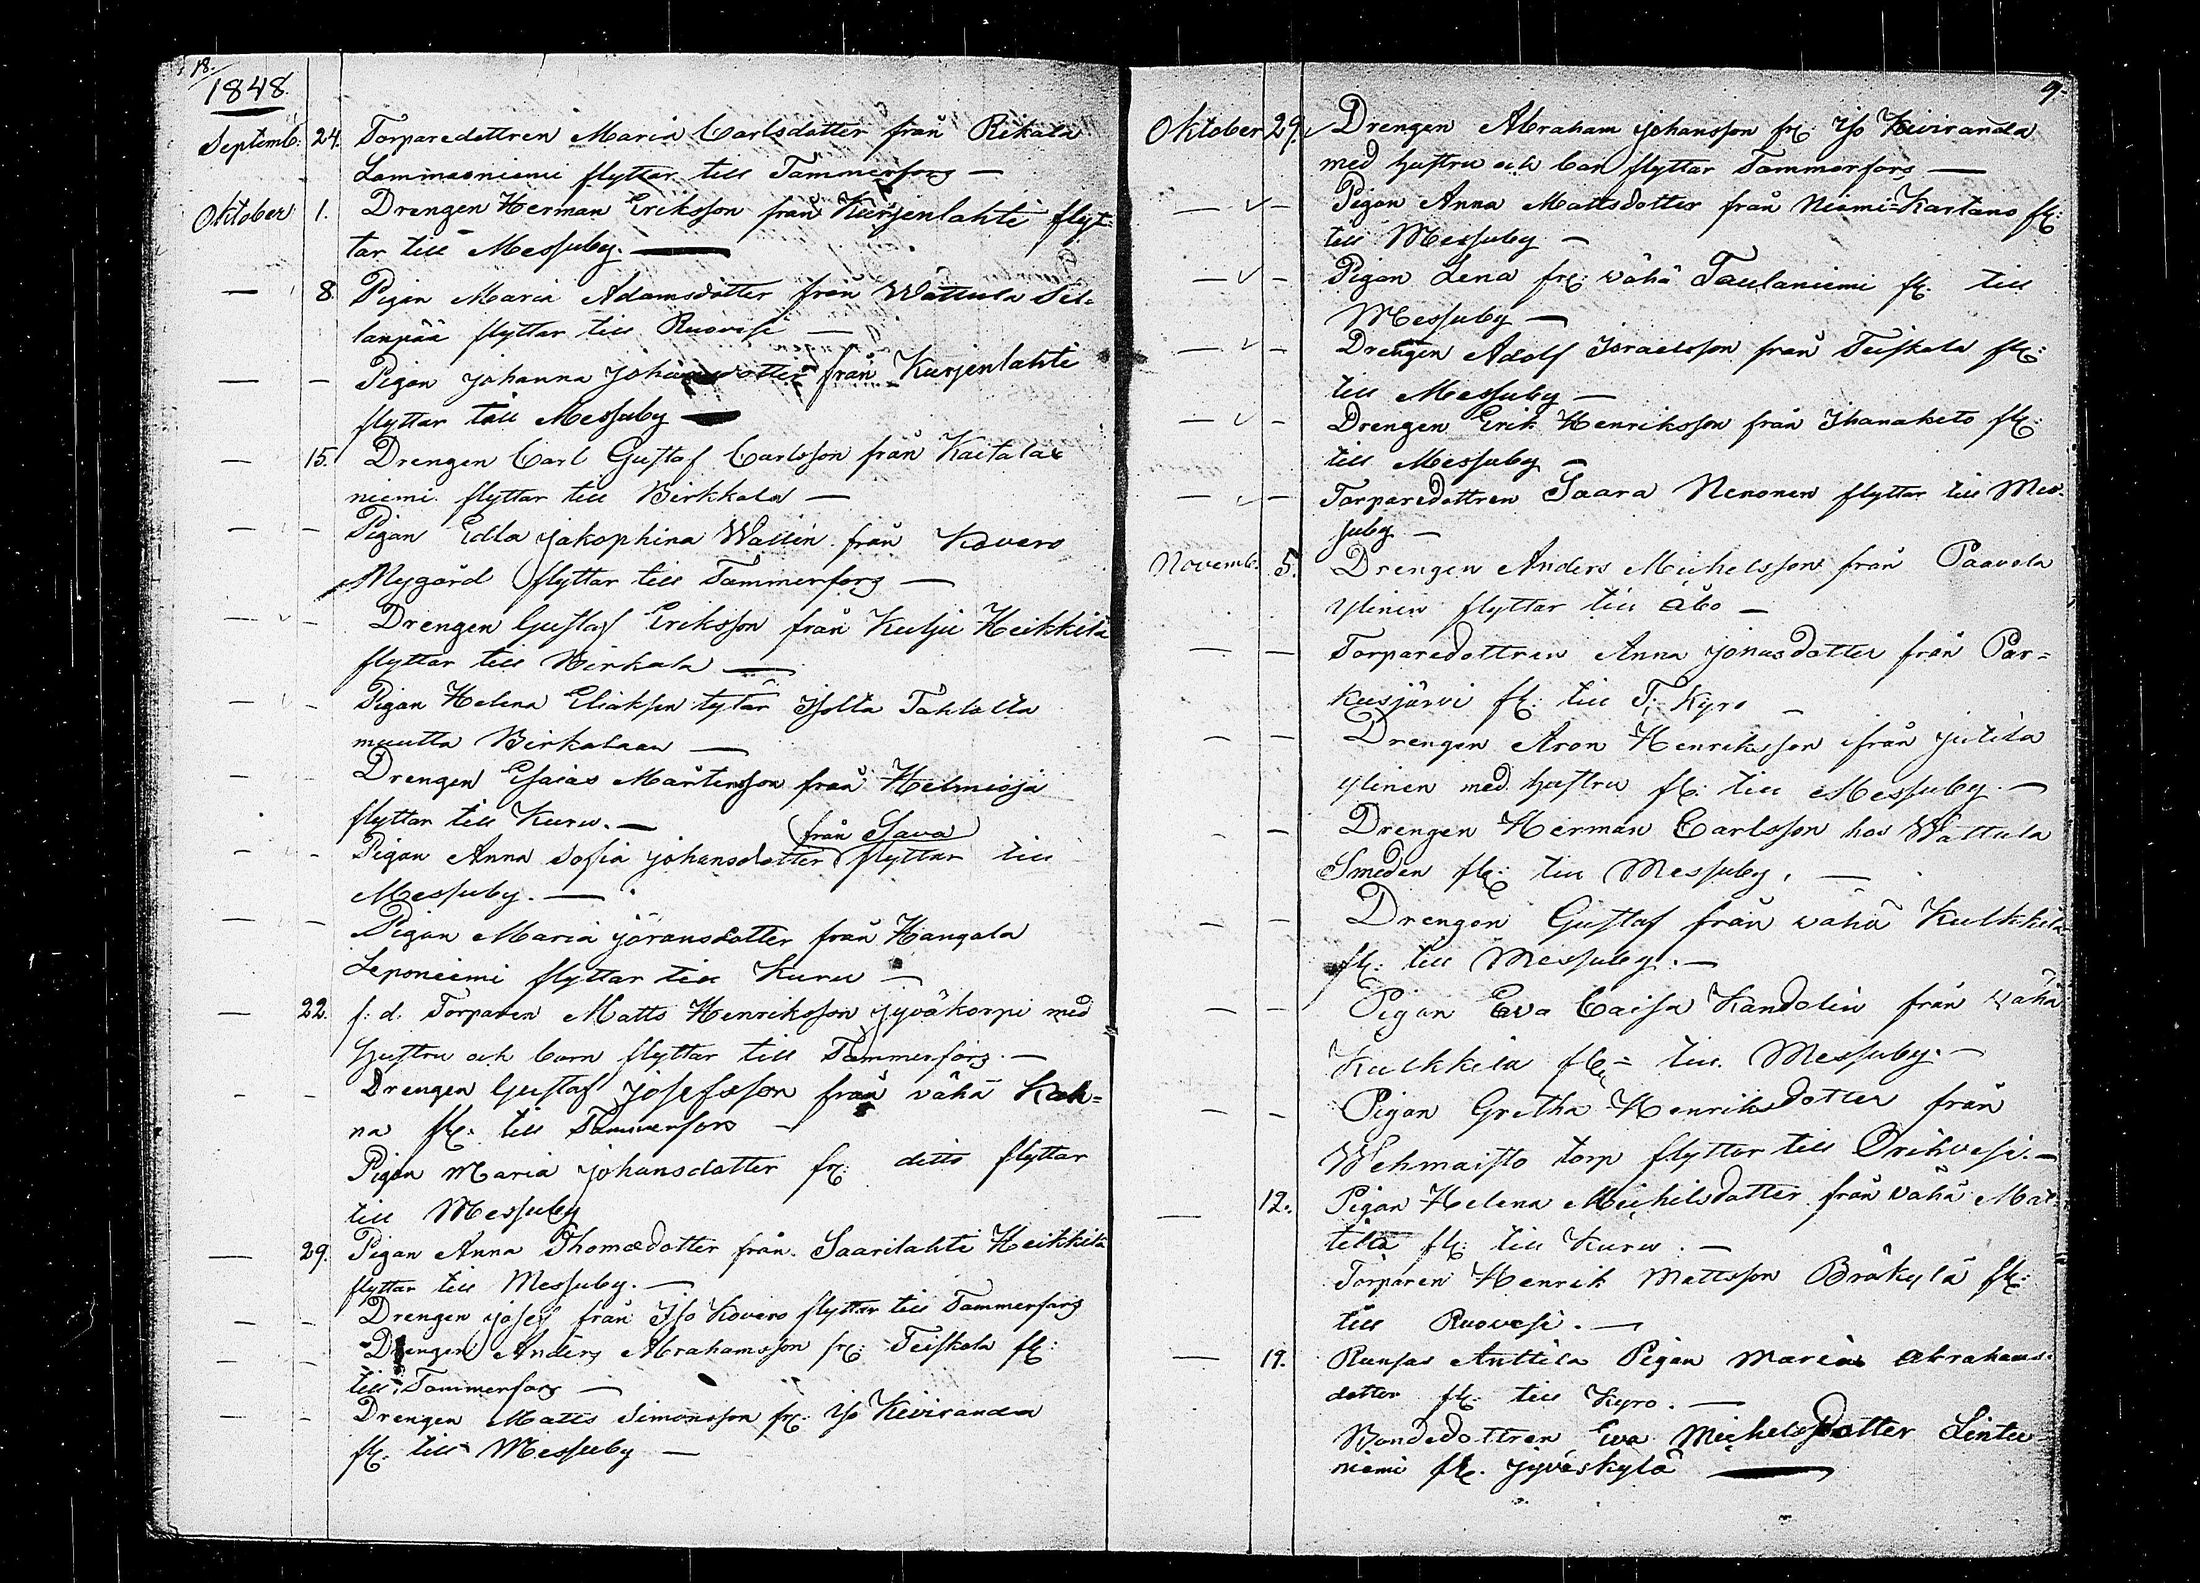 18.
1848.
Septemb: 24. Torparedottren Maria Carlsdotter från Rikala
Lammasniemi flyttar till Tammerfors —
Oktober 1. Drengen Herman Eriksson från Kurjenlahti flyt-
tar till Messuby. —
— 8. Pigan Maria Adamsdotter från Wattula Sil-
lanpää flyttar till Ruovesi —
— — Pigan Johanna Johansdotter från Kurjenlahti
flyttar till Messuby —
— 15. Drengen Carl Gustaf Carlsson från Kaitala
niemi flyttar till Birkkala —
— — Pigan Edla Jakophina Wallin från Kovero
Nygård flyttar till Tammerfors —
— — Drengen Gustaf Eriksson från Kulju Heikkilä
flyttar till Birkala —
— — Pigan Helena Eliaksen tytär Isolta Tahlolta
muutta Birkalaan —
— — Drengen Esaias Mårtensson från Helmisja
flyttar till Kuru. —
från Sava
— — Pigan Anna Sofia Johansdotter flyttar till
Messuby. —
— — Pigan Maria Jöransdotter från Hangala
Leponiemi flyttar till Kuru —
— 22. f: d: Torparen Matts Henriksson Jyväkorpi med
Hustru och barn flyttar till Tammerfors. —
— — Drengen Gustaf Josefsson från vähä Kah=
na fl: till Tammerfors —
Pigan Maria Johansdotter fr: ditto flyttar
till Messuby
— 29. Pigan Anna Thomædotter från Saarilahti Heikkilä
flyttar till Messuby. —
— — Drengen Josef från Iso Kovero flyttar till Tammerfors
— — Drengen Anders Abrahamsson fr: Teiskola fl:
till Tammerfors —
— — Drengen Matts Simonsson fr: Iso Kiviranda
fl: till Messuby —
9.
Oktober 29. Drengen Abraham Johansson fr: Iso Kiviranda
med hustru och barn flyttar Tammerfors —
— — Pigan Anna Mattsdotter från Niemi=Kartano fl:
till Messuby —
— — Pigan Lena fr: vähä Taulaniemi fl: till
Messuby —
— — Drengen Adolf Israelsson från Teiskola fl:
till Messuby —
— — Drengen Erik Henriksson från Ihanaketo fl:
till Messuby —
— — Torparedottren Saara Nenonen flyttar till Mes-
suby —
Novemb. 5. Drengen Anders Michelsson från Paavola
Ylinen flyttar till Åbo —
— — Torparedottren Anna Jonasdotter från Par=
kusjärvi fl: till T: Kyro —
— — Drengen Aron Henriksson från Jutila
Ylinen med hustru fl: till Messuby. —
— — Drengen Herman Carlsson hos Wattula
Smeden fl: till Messuby. —
— — Drengen Gustaf från vähä Kulkkila
fl: till Messuby. —
— — Pigan Eva Caisa Kandolin från vähä
Kulkkila fl: till Messuby. —
— — Pigan Gretha Henriksdotter från
Wehmaisto torp flyttar till Orihvesi. —
— 12. Pigan Helena Michelsdotter från vähä Mat-
tila fl: till Kuru. —
Torparen Henrik Mattsson Bråkylä fl:
till Ruovesi. —
— 19. Runsas Anttila Pigan Maria Abrahams-
dotter fl: till Kyro. —
Bondedottren Eva Michelsdotter Lintu-
niemi fl: Jyväskylä —